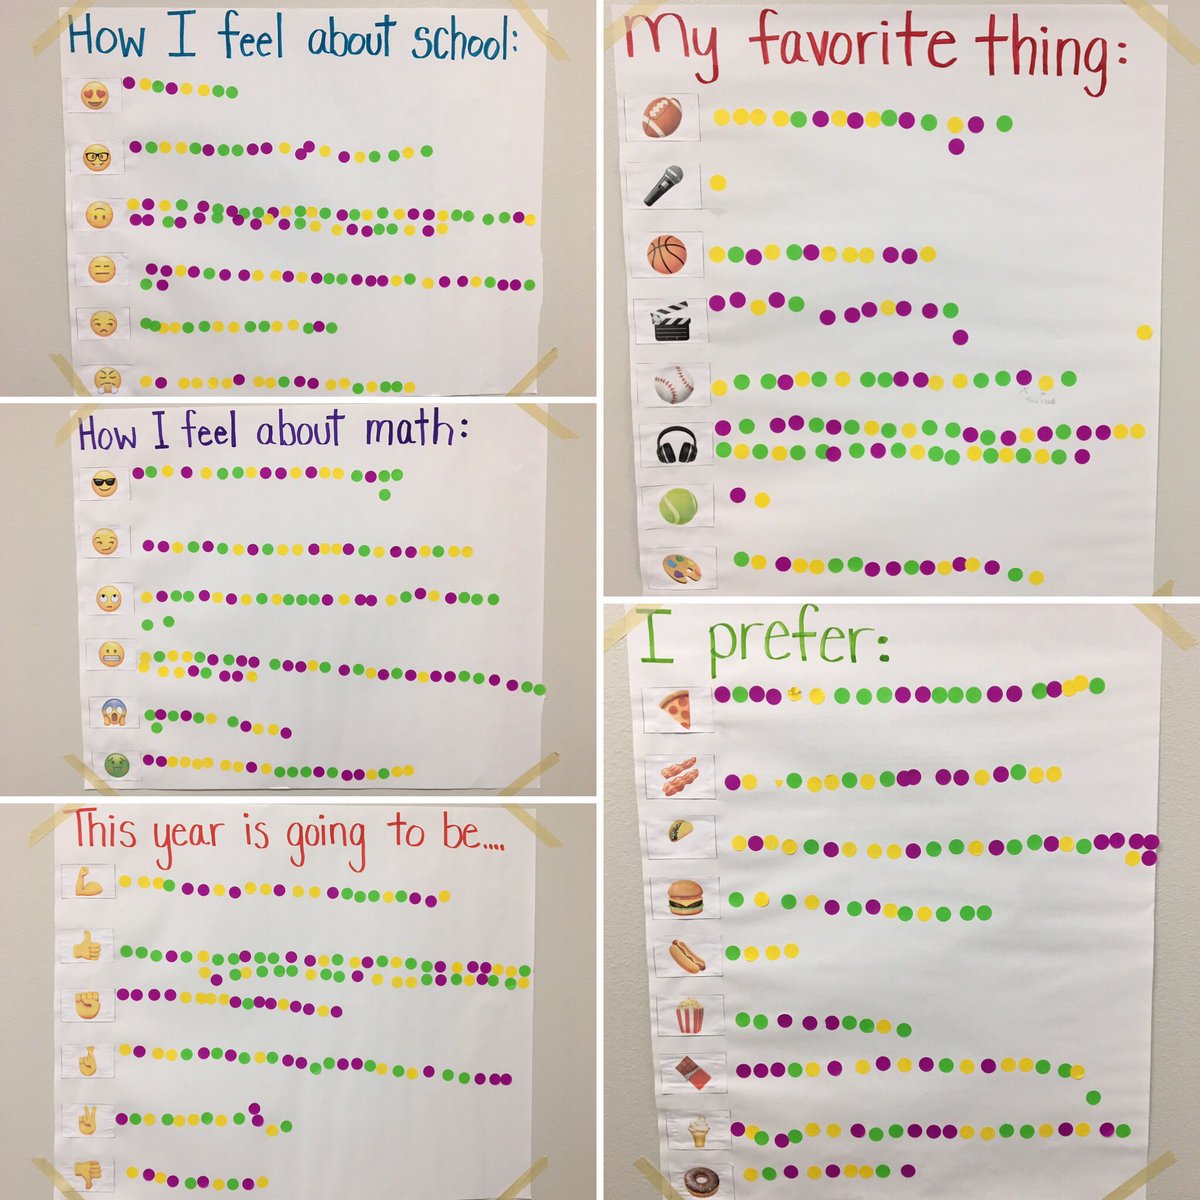 How I feel about school:
How I feel about math:
This year is going to be....
My favorite thing:
I prefer: